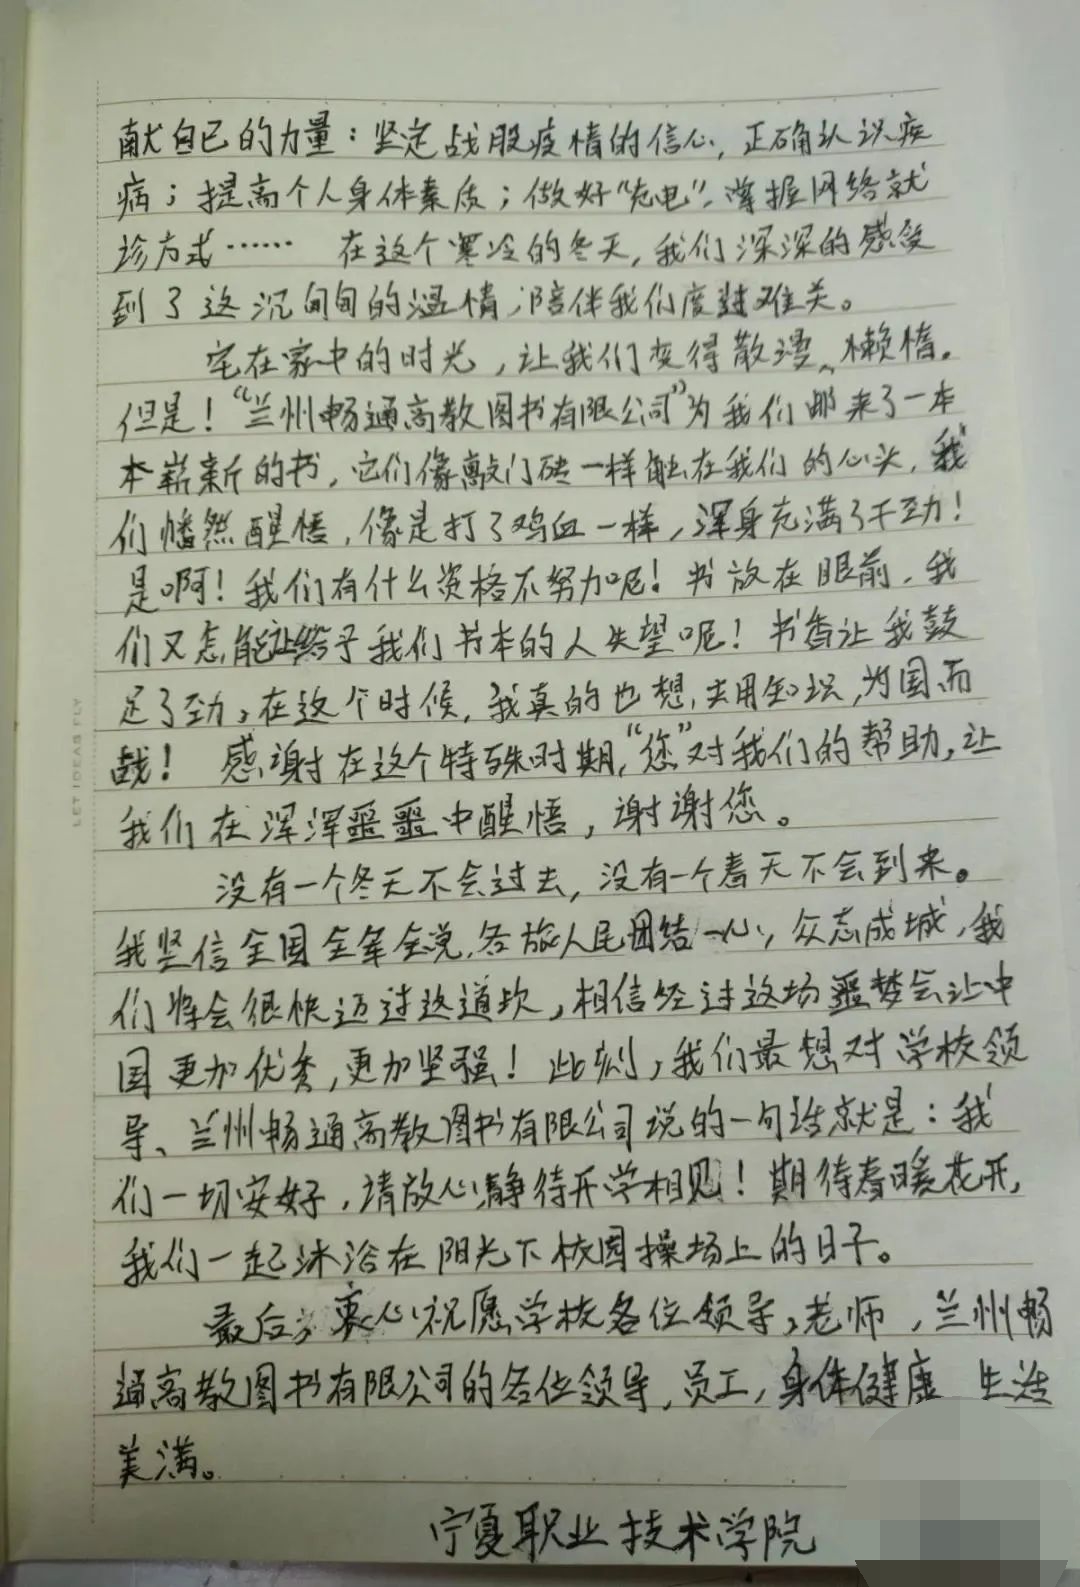 献自己的力量：坚定战股疫情的信心，正确认识疾
病；提高个人身体素质；做好“充电”，掌握网络就
诊方式…… 在这个寒冷的冬天，我们深深的感受
到了这沉甸甸的温情，陪伴我们度过难关。
宅在家中的时光，让我们变得散漫、懒惰。
但是！“兰州畅通高教图书有限公司”为我们邮来了一本
本崭新的书，它们像敲门砖一样触在我们的心头，我
们幡然醒悟，像是打了鸡血一样，浑身充满了干劲！
是啊！我们有什么资格不努力呢！书放在眼前，我
们又怎能让给予我们书本的人失望呢！书香让我鼓
足了劲，在这个时候，我真的也想，去用知识，为国而
战！ 感谢在这个特殊时期，“您”对我们的帮助，让
我们在浑浑噩噩中醒悟，谢谢您。
没有一个冬天不会过去，没有一个春天不会到来。
我坚信全国全军全党，各族人民团结一心，众志成城，我
们将会很快迈过这道坎，相信经过这场噩梦会让中
国更加优秀，更加坚强！此刻，我们最想对学校领
导、兰州畅通高教图书有限公司说的一句话就是：我
们一切安好，请放心，静待开学相见！期待春暖花开，
我们一起沐浴在阳光下校园操场上的日子。
最后，衷心祝愿学校各位领导，老师，兰州畅
通高教图书有限公司的各位领导，员工，身体健康 生活
美满。
宁夏职业技术学院
LET IDEAS FLY